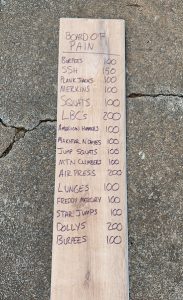 BOARD OF
PAIN
BURPEES 100
SSH 150
PLANK JACKS 100
MERKINS 100
SQUATS 100
LBCs 200
AMERICAN HAMMERS 100
MAKHTAR N'DIAYES 100
JUMP SQUATS 100
MTN CLIMBERS 100
AIR PRESS 200
LUNGES 100
FREDDY MERCURY 100
STAR JUMPS 100
DOLLYS 200
BURPEES 100